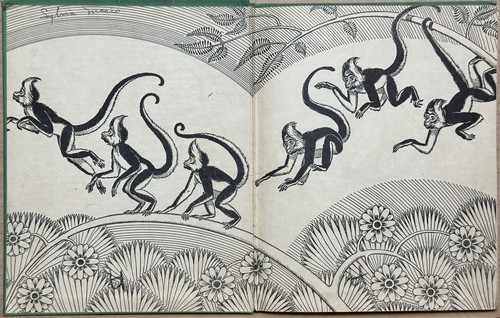 Sylvia Mario